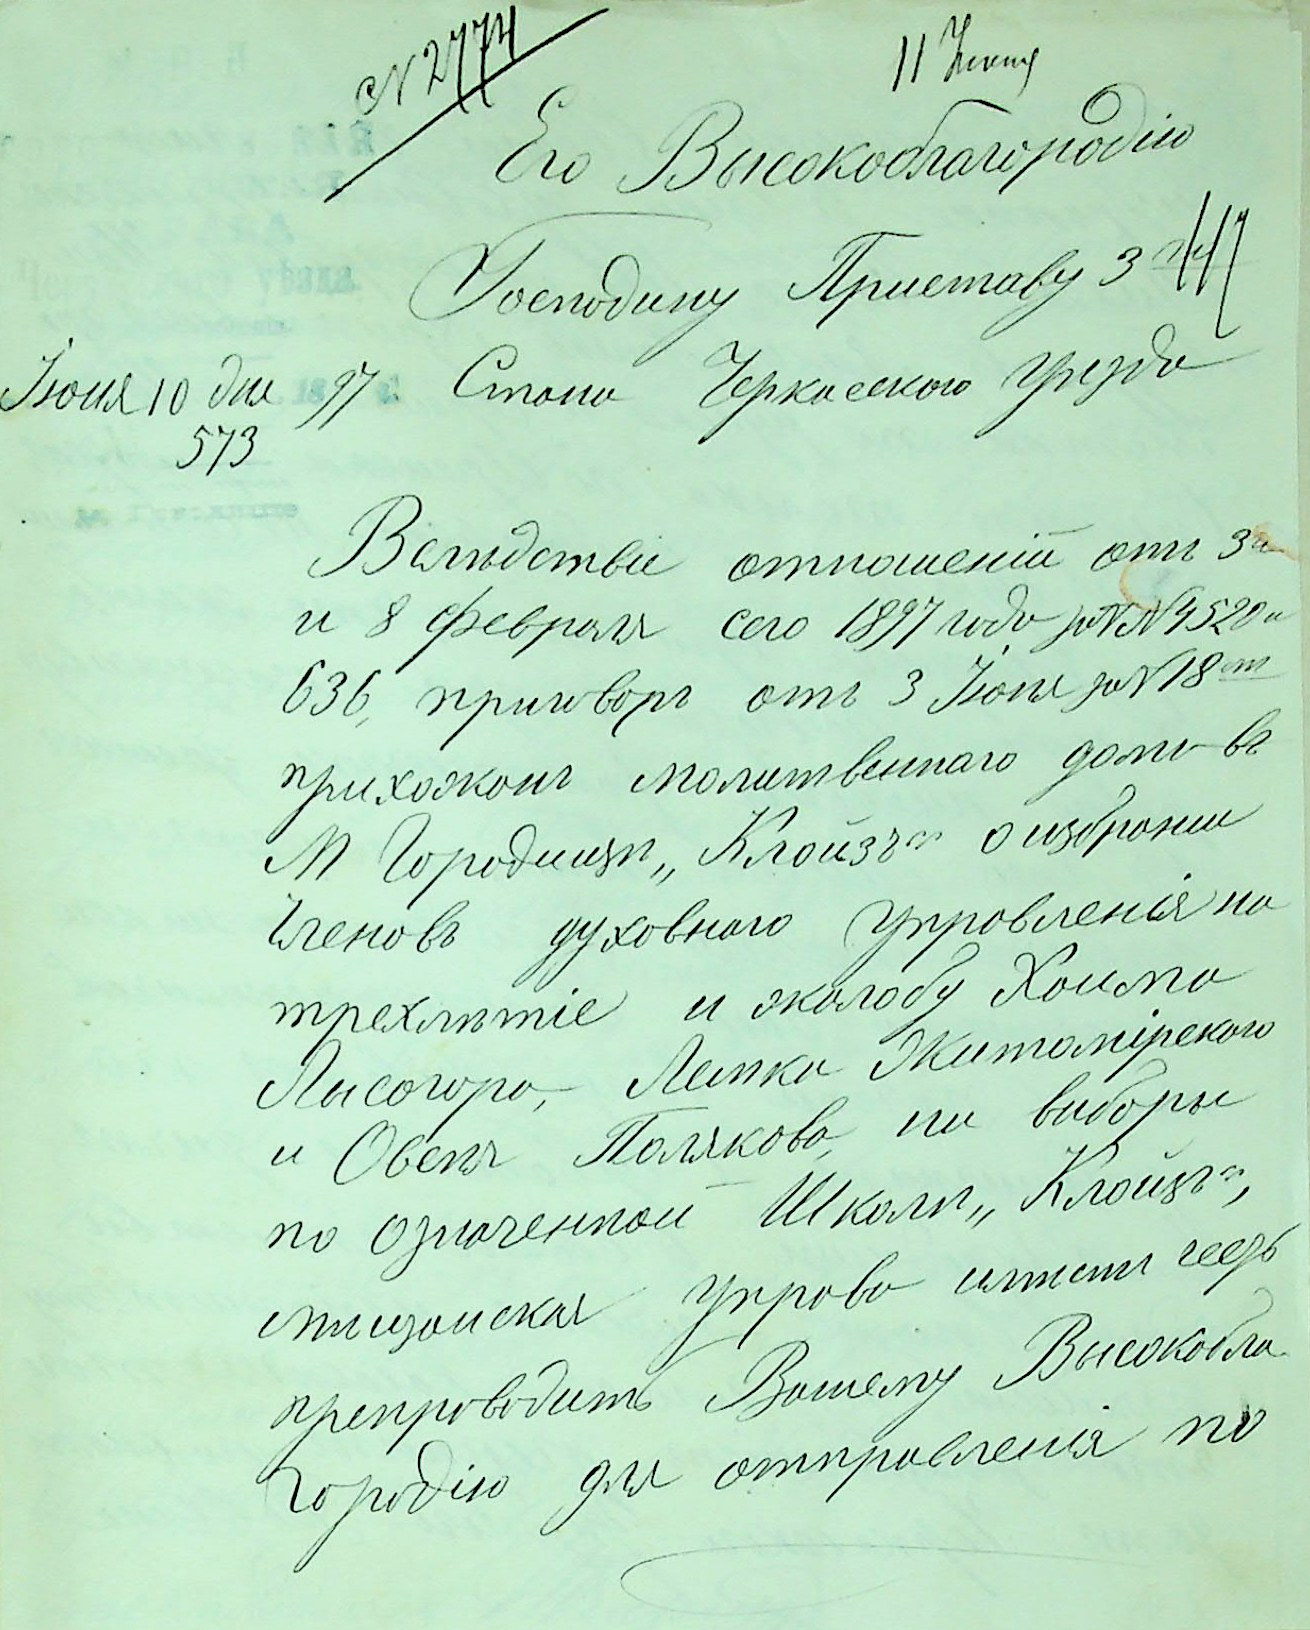 № 2774
11 Іюня
Его Высокоблагородію
Господину Приставу 3 го
Іюня 10 дня 97 Стана Черкасского Уезда
573
Вслѣдствіе отношеній отъ 3 и
и 8 Февраля сего 1897 года за №№ 4520 и
636, приговоръ отъ 3 Іюня за № 18
прихожанъ молитвеннаго дома въ
М Городищѣ „Клойзъ“ о избрании
Членовъ духовного Управленія на
трехлѣтіе и жалобу Хаима
Лысогора, Лейка Житомірского
и Овсея Полякова, на выборы
по означенной Школѣ „Клойзъ“,
мѣщанская Управа имѣетъ честь
препроводить Вашему Высокобла
городію для отправленія по